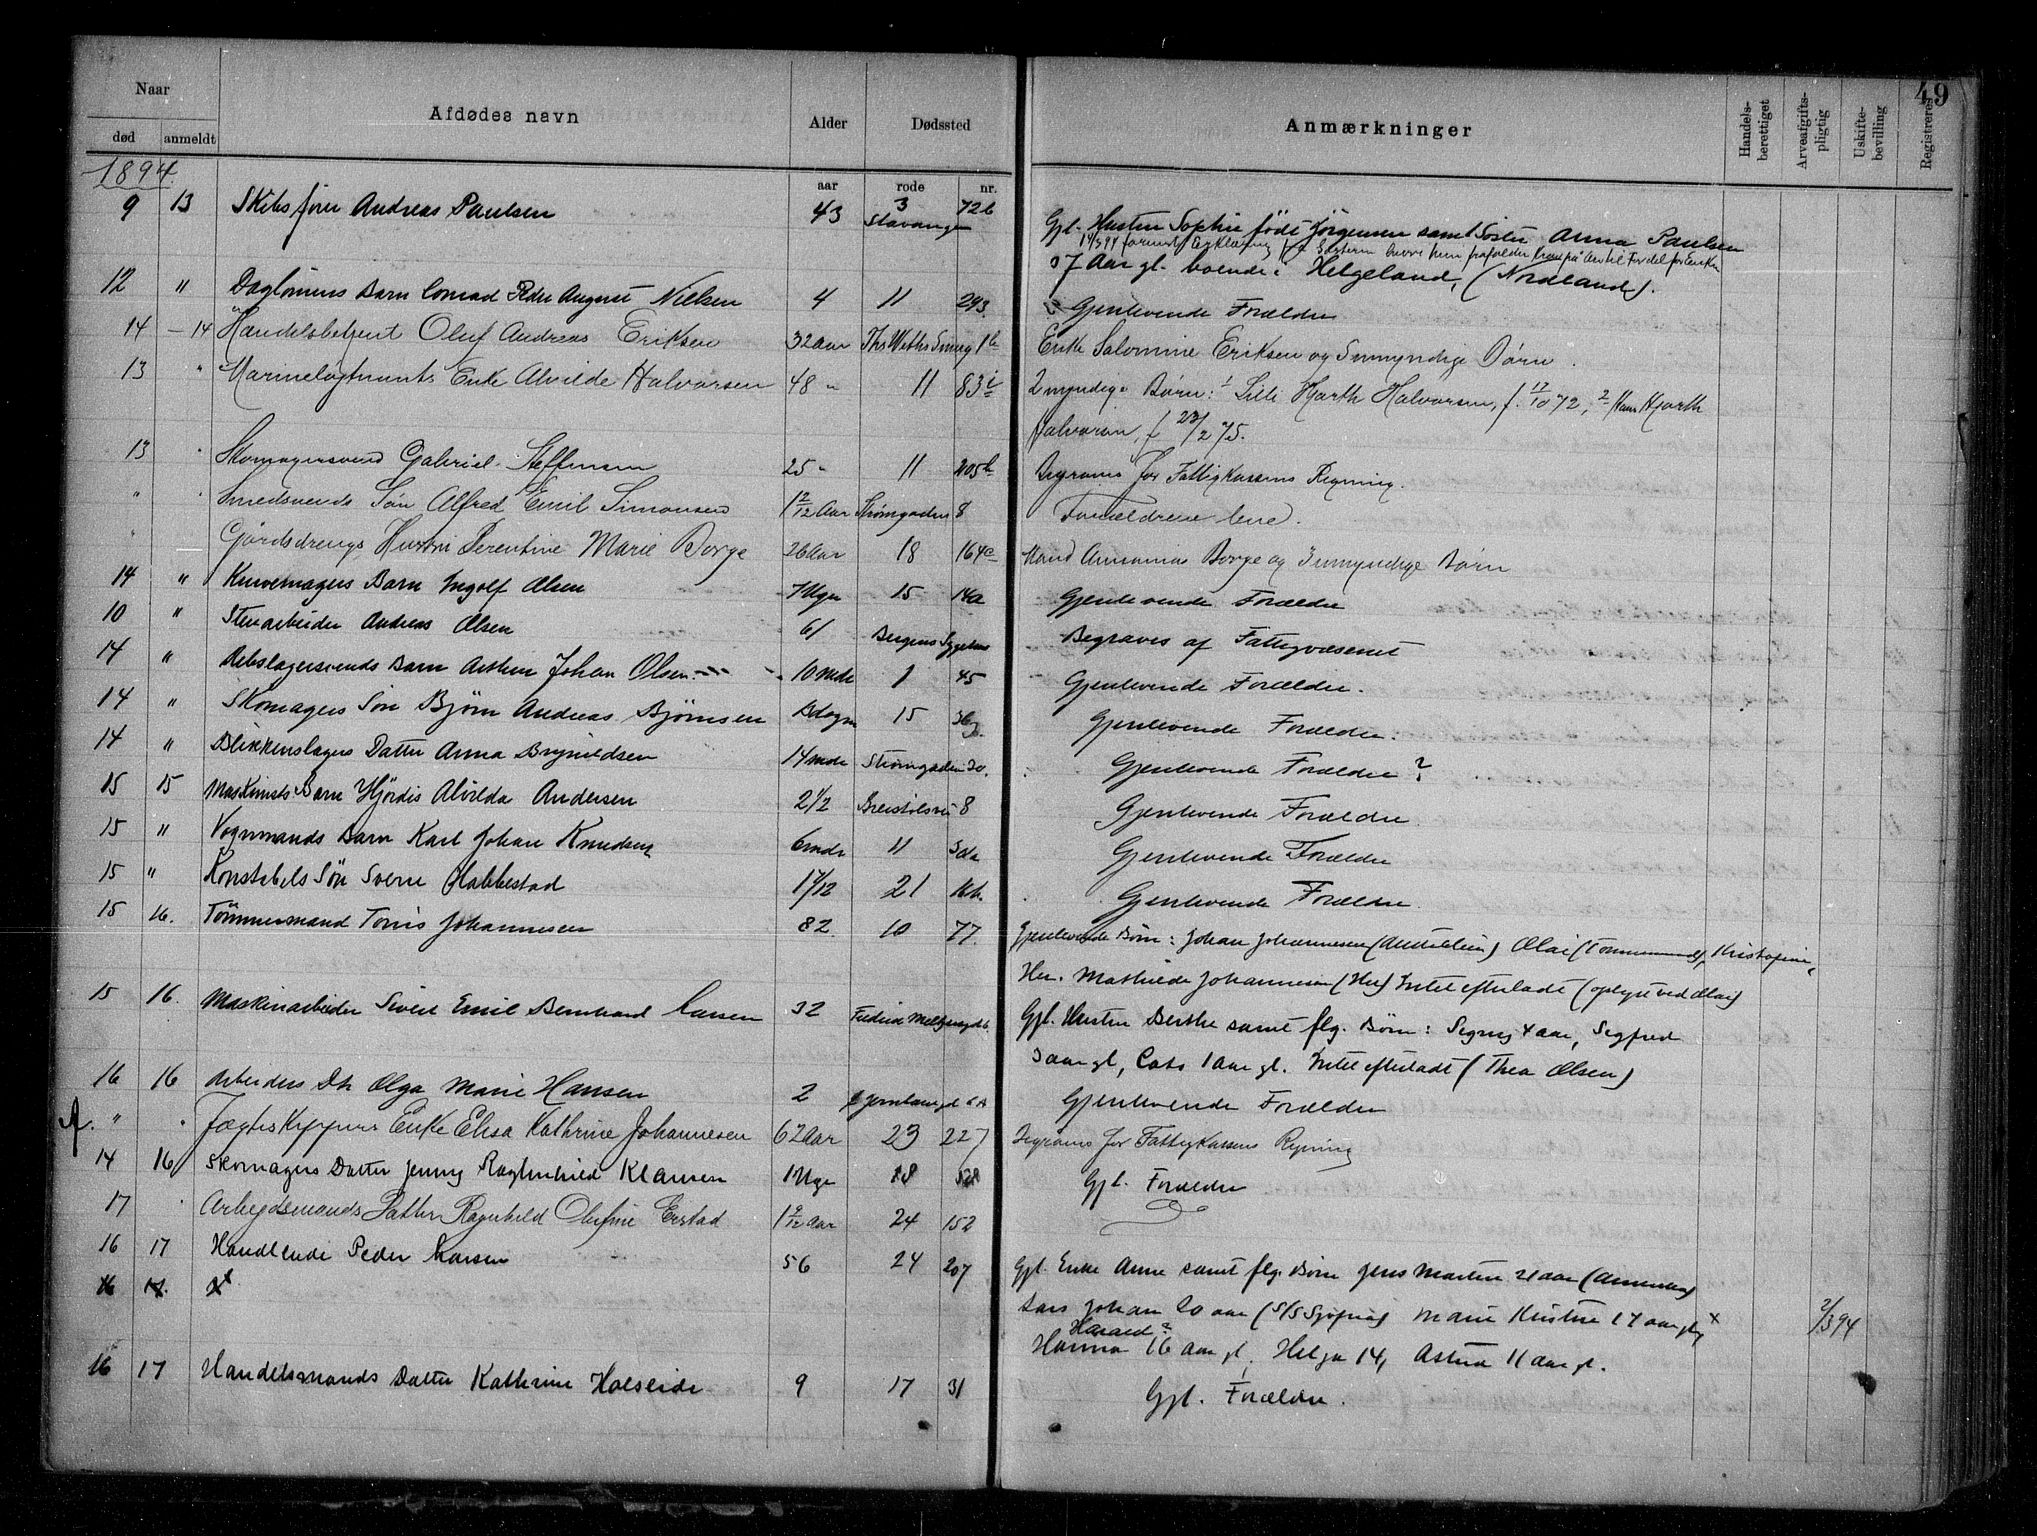 49
Naar
død anmeldt Afdødes navn Alder Dødssted Anmærkninger Handels-berettiget Arveafgifts-pligtig Uskifte-bevilling Registreres
1894 aar rode nr.
9 13 Skibsfører Andreas Paulsen 43 3 Stavanger 72b Gjl. Hustru Sophie født Jørgensen samt Søster Anna Paulsen
37 Aar gl. boende i Helgeland, (Nordland).
12 " Daglønners Barn Conrad Peder August Nielsen 4 11 243 Gjenlevende Forældre
14 - 14 Handelsbetjent Oluf Andreas Eriksen 32 Aar Ths Weths Smug 1b Enke Salomine Eriksen og 5 umyndige Børn.
13 " Marineløjtnants Enke Alvilde Halvorsen 48 " 11 83i 2 myndige Børn: 1 Lilli Hjorth Halvorsen, f. 17/10 72, 2 Hans Hjorth
Halvorsen, f 23/2 75.
13 " Skomagersvend Gabriel Steffensen 25 " 11 205b Begraves for Fattigkassens Regning.
" " Smedsvends Søn Alfred Emil Simonsen 1 2/12 Aar Strømgaden 8 Forældrene leve.
" Gårdsdrengs Hustru Berentine Marie Borge 26 Aar 18 164c Mand Annanias Borge og 3 umyndige Børn
14 " Kurvemagers Barn Ingolf Olsen 7 Uger 15 14a Gjenlevende Forældre
10 " Stenarbeider Andreas Olsen 61 Bergens Sygehus Begraves af Fattigvæsenet
14 " Rebslagersvends Barn Arthur Johan Olsen 10 mdr 1 45 Gjenlevende Forældre.
14 " Skomagers Søn Bjørn Andreas Bjørnsen 15 Gjenlevende Forældre.
14 " Blikkenslagers Datter Anna Brynildsen 14 mdr Strømgaden 30. Gjenlevende Forældre ?
15 15 Maskinists Barn Hjördis Alvilda Andersen 2 1/2 Breistølsvei 8 Gjenlevende Forældre.
15 " Vognmands Barn Karl Johan Knudsen 6 mdr 11 Gjenlevende Forældre
15 " Konstabels Søn Sverre Habbestad 1 7/12 21 16b. Gjenlevende Forældre.
15 16. Tømmermand Tønis Johannesen 82. 10 77. Gjenlevende Børn: Johan Johannesen (Australien) Olai (Tømmermand), Kristofine,
Her. Mathilde Johannesen (Her) Intet efterladt (oplyst ved Olai)
15 16. Maskinarbeider Sivert Emil Bernhard Larsen 32 Fredrik Meltzersgd 6. Gjl. Hustru Berthe samt flg. Børn: Signy 4 aar, Sigfred
3 aar gl, Cato 1 Aar gl. Intet efterladt (Thea Olsen)
16 16 Arbeiders Dtr Olga Marie Hansen 2 Gjenlevende Forældre
" " Jægteskippers Enke Elisa Kathrine Johannesen 62 Aar 23 227 Begraves for Fattigkassens Regning
14 16 Skomagers Datter Jenny Ragnhild Klausen 1 Uge 18 Gjl. Forældre
17 " Arbeidsmands Datter Ragnhild Olefine Erstad 1 9/12 Aar 24 152
16 17 Handlende Peder Larsen 56 24 207 Gjl. Enke Anne samt flg. Børn Jens Martin 21 aar (Amerika)
16 17. Lars Johan 20 aar (S/S Sjofna) Marie Kristine 17 aar gl, x 2/3 94
Harald ?
Hanna 16 aar gl, Helga 14, Astrid 11 aar gl.
16 17 Handelsmands Datter Kathrine Holseide 9 17 31 Gjl. Forældre.